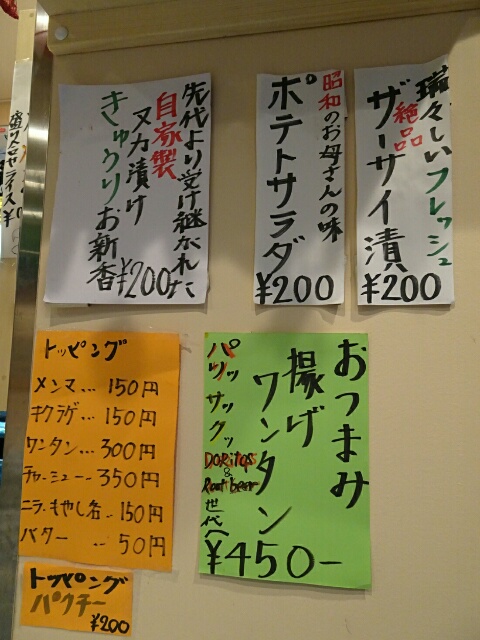 瑞々しいフレッシュ
絶品
ザーサイ漬
¥200
昭和のお母さんの味
ポテトサラダ
¥200
先代より受け継がれた
自家製
ヌカ漬け
きゅうりお新香
¥200
おつまみ
揚げ
ワンタン
パリッサクッ
DORitos
&
Root beer
世代へ
¥450-
トッピング
メンマ... 150円
キクラゲ... 150円
ワンタン... 300円
チャーシュー... 350円
ニラ、もやし各... 150円
バター... 50円
トッピング
パクチー
¥200